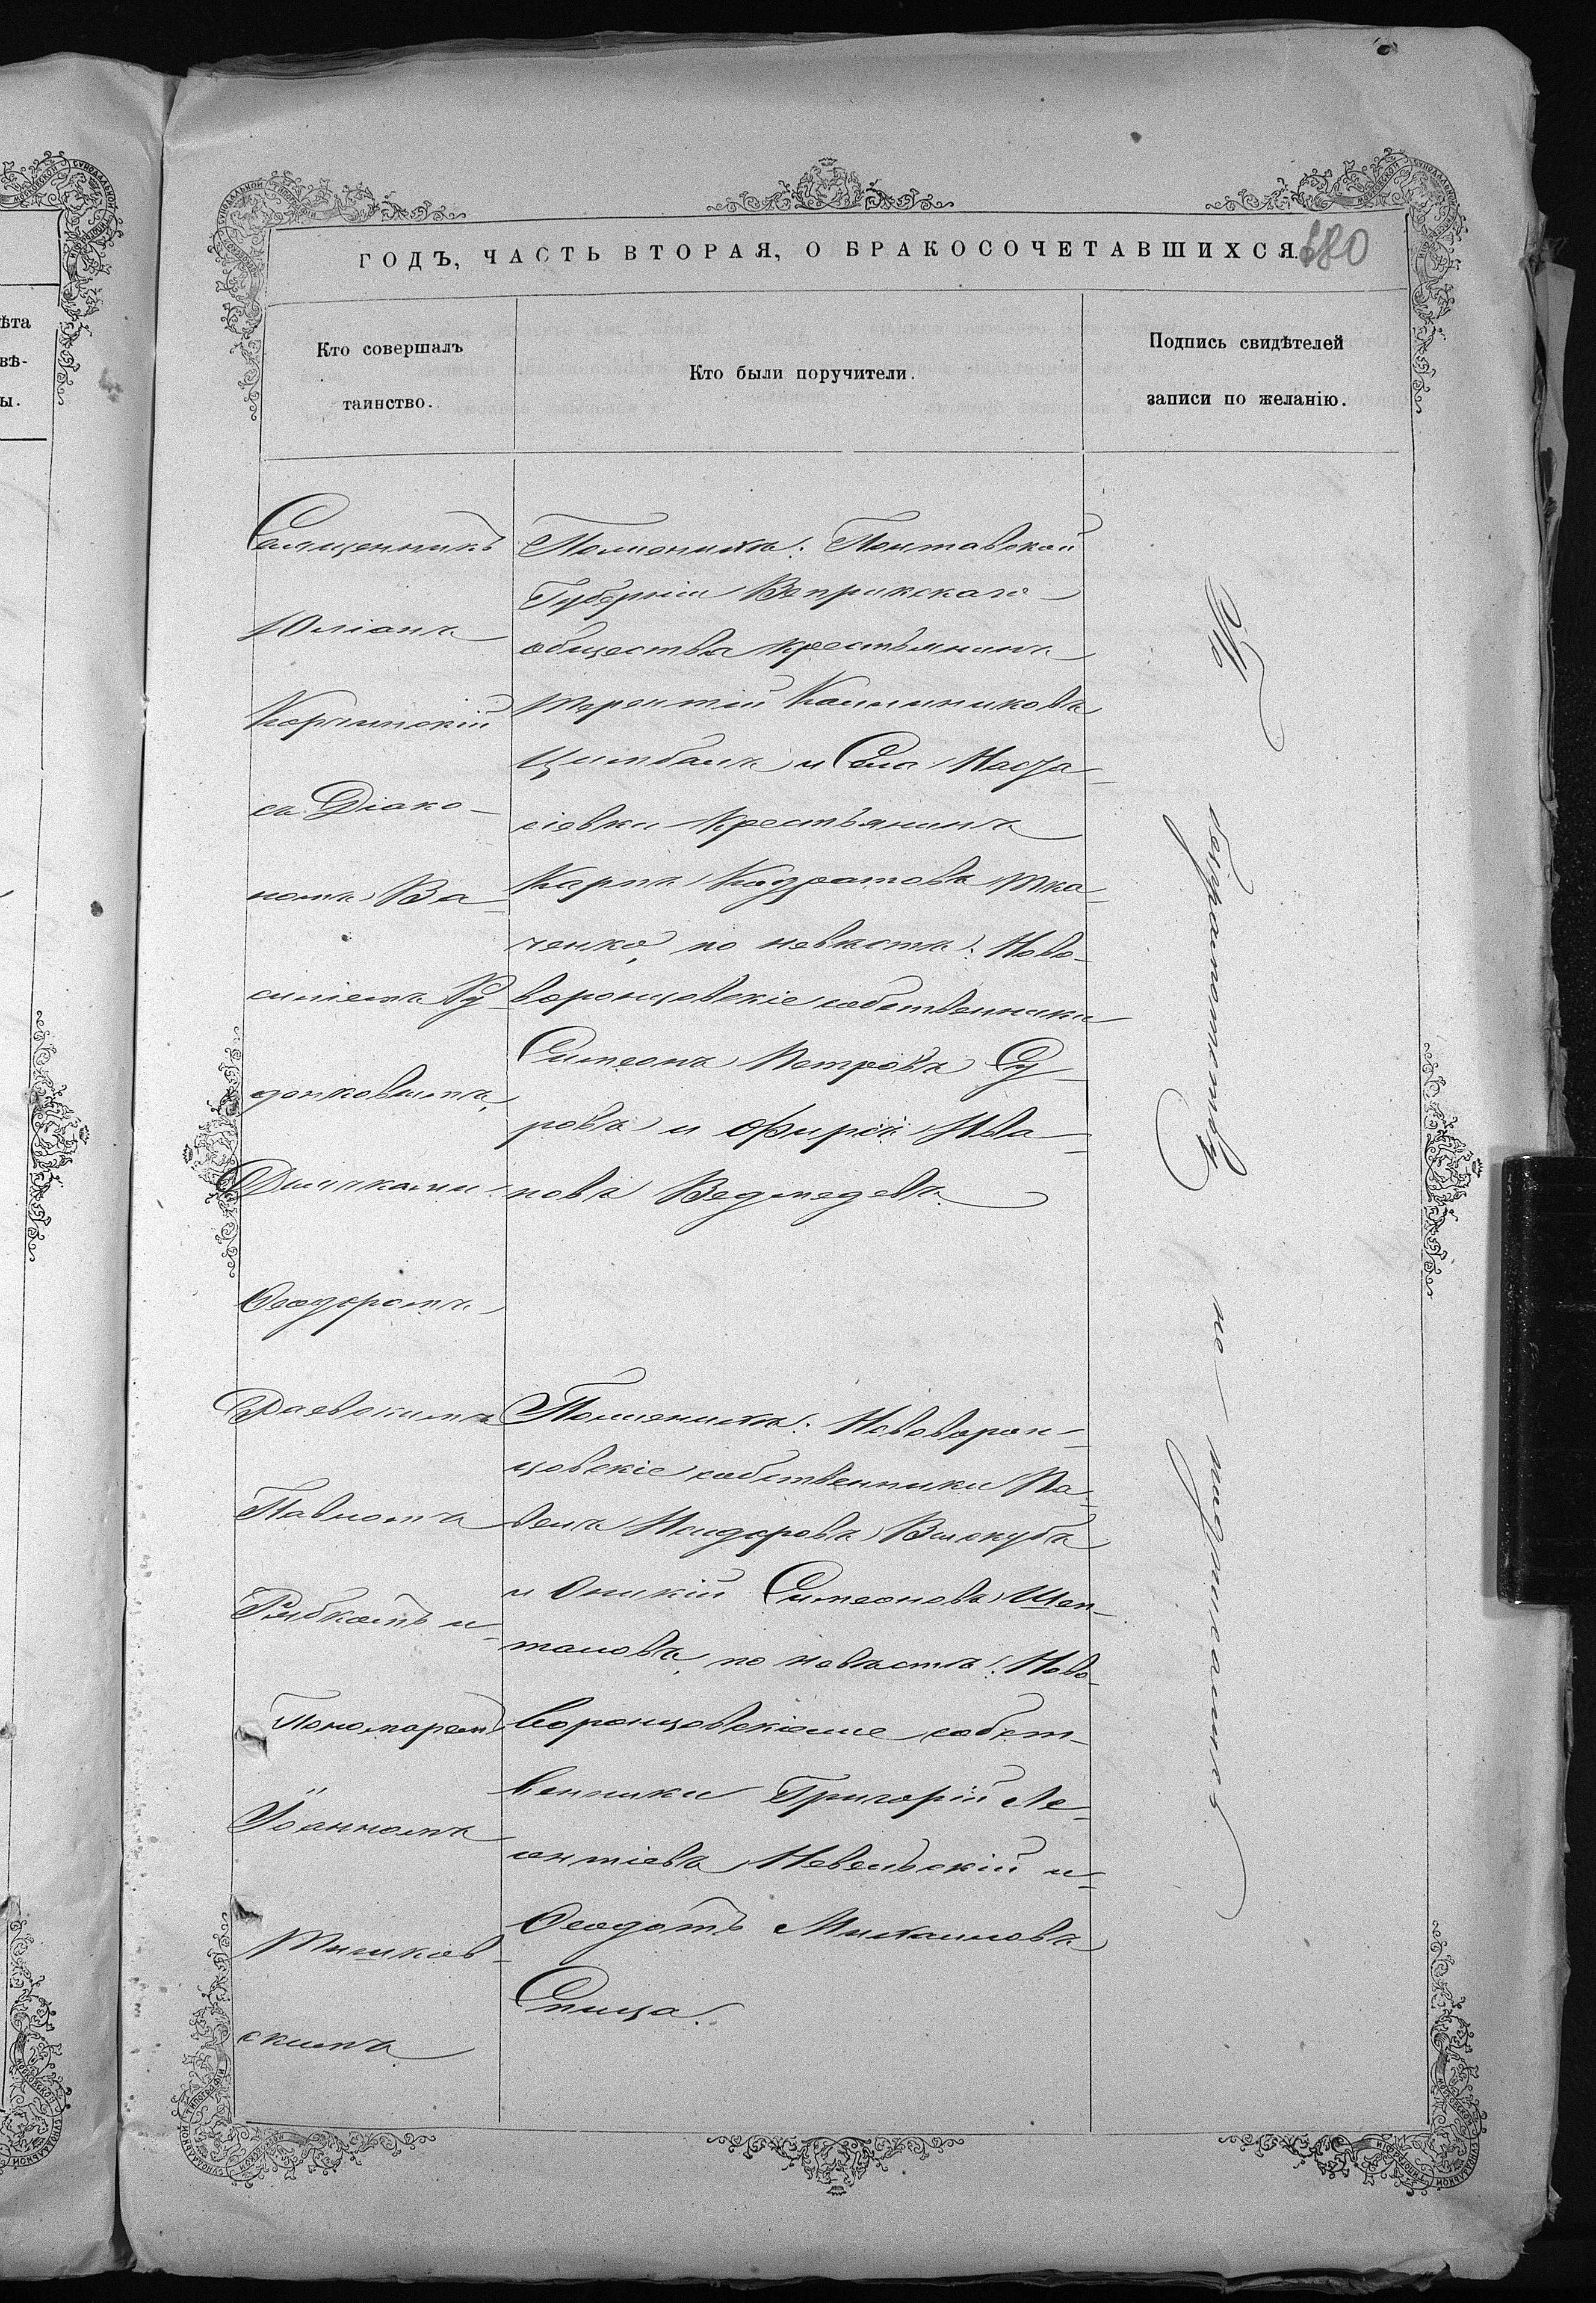 ГОДЪ, ЧАСТЬ ВТОРАЯ, О БРАКОСОЧЕТАВШИХСЯ.
680
Кто совершалъ
таинство.
Кто были поручители.
Подпись свидѣтелей
записи по желанію.
Священникъ
Юліанъ
съ Діако-
номъ Ва-
силіемъ Ру-
Дьячками:
Ѳеодоромъ
Раевскимъ
Павломъ
Рыбкомъ и
Пономаремъ
Іоанномъ
Тишков-
скимъ
По женихѣ: Полтавской
Губерніи Веприкскаго
общества крестьянинъ
Терентій Калинниковъ
Цимбалъ и Села Наста-
сіевки крестьянинъ
Карпъ Кодратовъ Тка-
ченко, по невѣстѣ: Ново-
воронцовскіе собственники
Симеонъ Петровъ Су-
ровъ и Фирсъ Ива-
новъ Ведмедевъ
По женихѣ: Нововорон-
цовскіе собственники Па-
велъ Исидоровъ Вискубъ
и Оникій Симеоновъ Шеп-
таловъ, по невѣстѣ: Ново-
воронцовскіеже собст-
венники Григорій Ле-
онтіевъ Невельскій и
Ѳеодотъ Михаиловъ
Спица.
по
ѣта
вѣ-
ы.